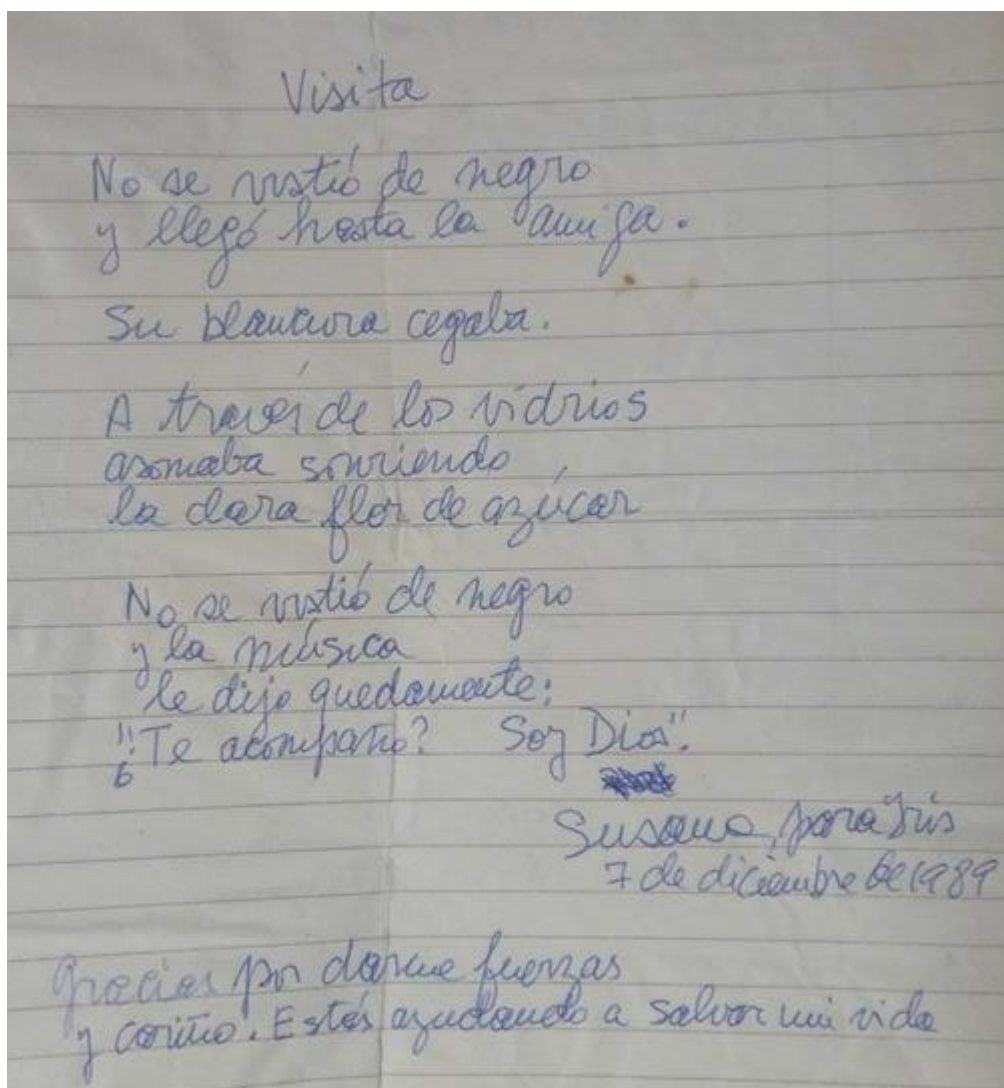 Visita
No se vistió de negro
y llegó hasta la amiga.
Su blancura cegaba.
A través de los vidrios
asomaba sonriendo
la clara flor de azúcar
No se vistió de negro
y la música
le dijo quedamente:
"¿Te acompaño? Soy Dios".
Susana, para Iris
7 de diciembre de 1989
Gracias por darme fuerzas
y cariño. Estás ayudando a salvar mi vida